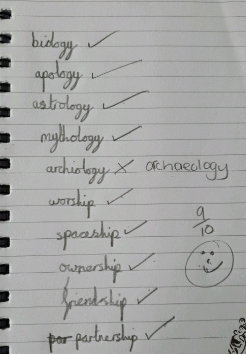 biology ✓
apology ✓
astrology ✓
mythology ✓
archiology ✗ archaeology
worship ✓
spaceship ✓
9/10
ownership ✓
friendship ✓
par partnership ✓